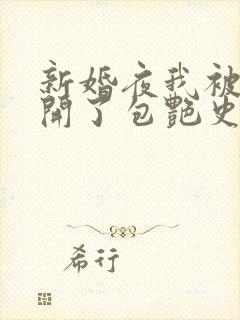 新婚夜我被
開了包艷史
希行